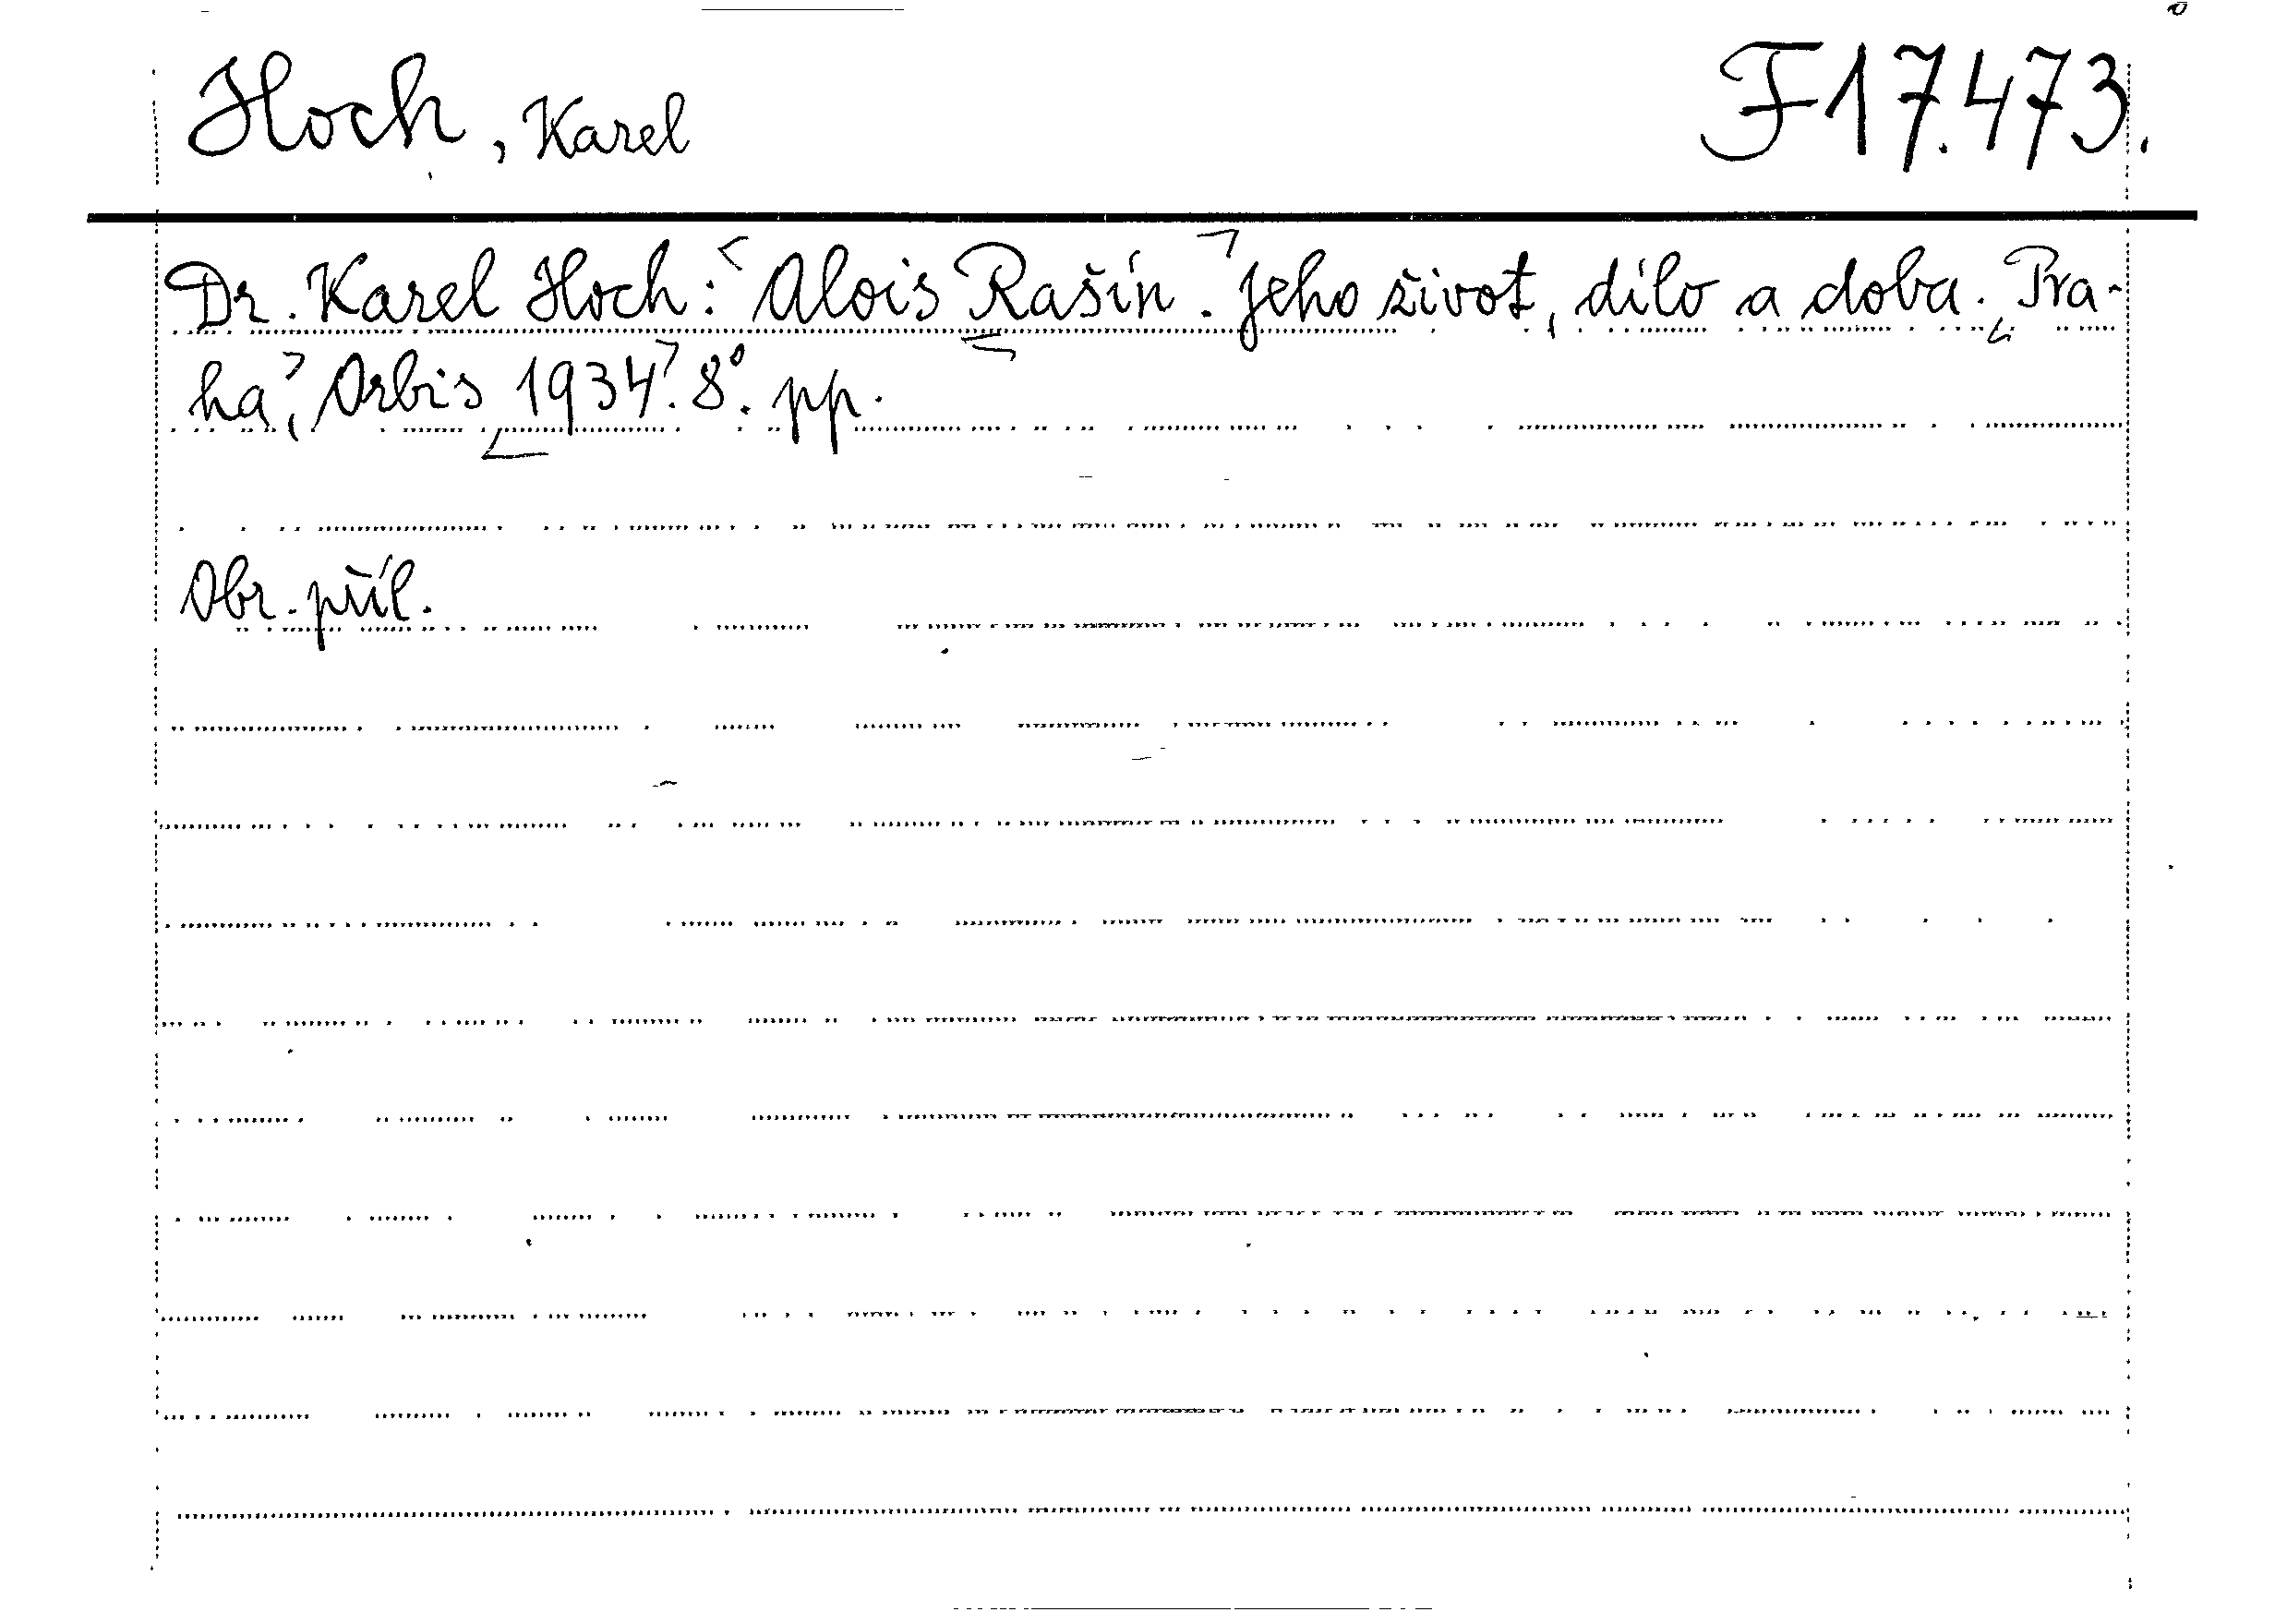 Hoch, Karel F 17.473.
Dr. Karel Hoch: Alois Rašín. Jeho život, dílo a doba. Pra-
ha, Orbis 1934. 8°. pp.
Obr. příl.